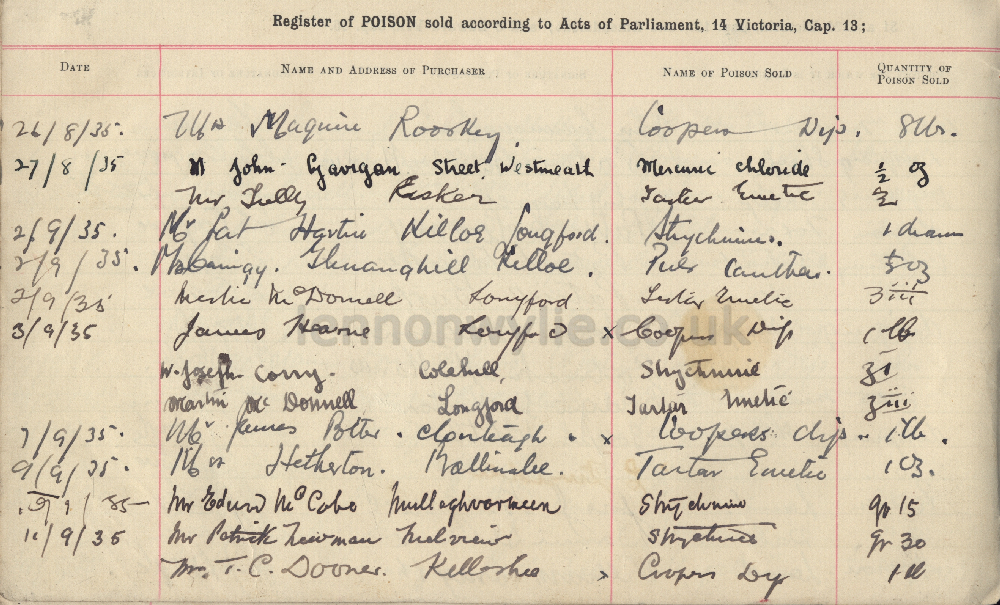 Register of POISON sold according to Acts of Parliament, 14 Victoria, Cap. 13;
DATE NAME AND ADDRESS OF PURCHASER NAME OF POISON SOLD QUANTITY OF POISON SOLD
26/8/35. Mrs Maguire Rooskey Coopers Dip. 8 lbs.
27/8/35 Mr John Gavigan Street Westmeath Mercuric chloride ½ oz
Mr Tully Tartar Emetic
2/9/35. Mr Pat Hartin Killoe Longford. Strychnine. 1 dram
2/9/35. Killoe. Pulv Canthar. 5 oz
2/9/35 McDonnell Longford Tartar Emetic ʒiii
3/9/35 James Hearne Longford x Coopers Dip 1 lb
W. Joseph Corry. Colehill, Strychnine ʒi
Martin McDonnell Longford Tartar Emetic ʒiii
7/9/35. Mr James Potter. Clonteagh. x Coopers dip. 1 lb.
9/9/35. Mrs Hetherton. Ballinalee. Tartar Emetic 1 oz.
Mr Edward McCabe Strychnine gr 15
11/9/35 Mr Patrick Newman Strychnine gr 30
Mr. T. C. Dooner. Kellashee x Coopers Dip 1 lb
lennonwylie.co.uk